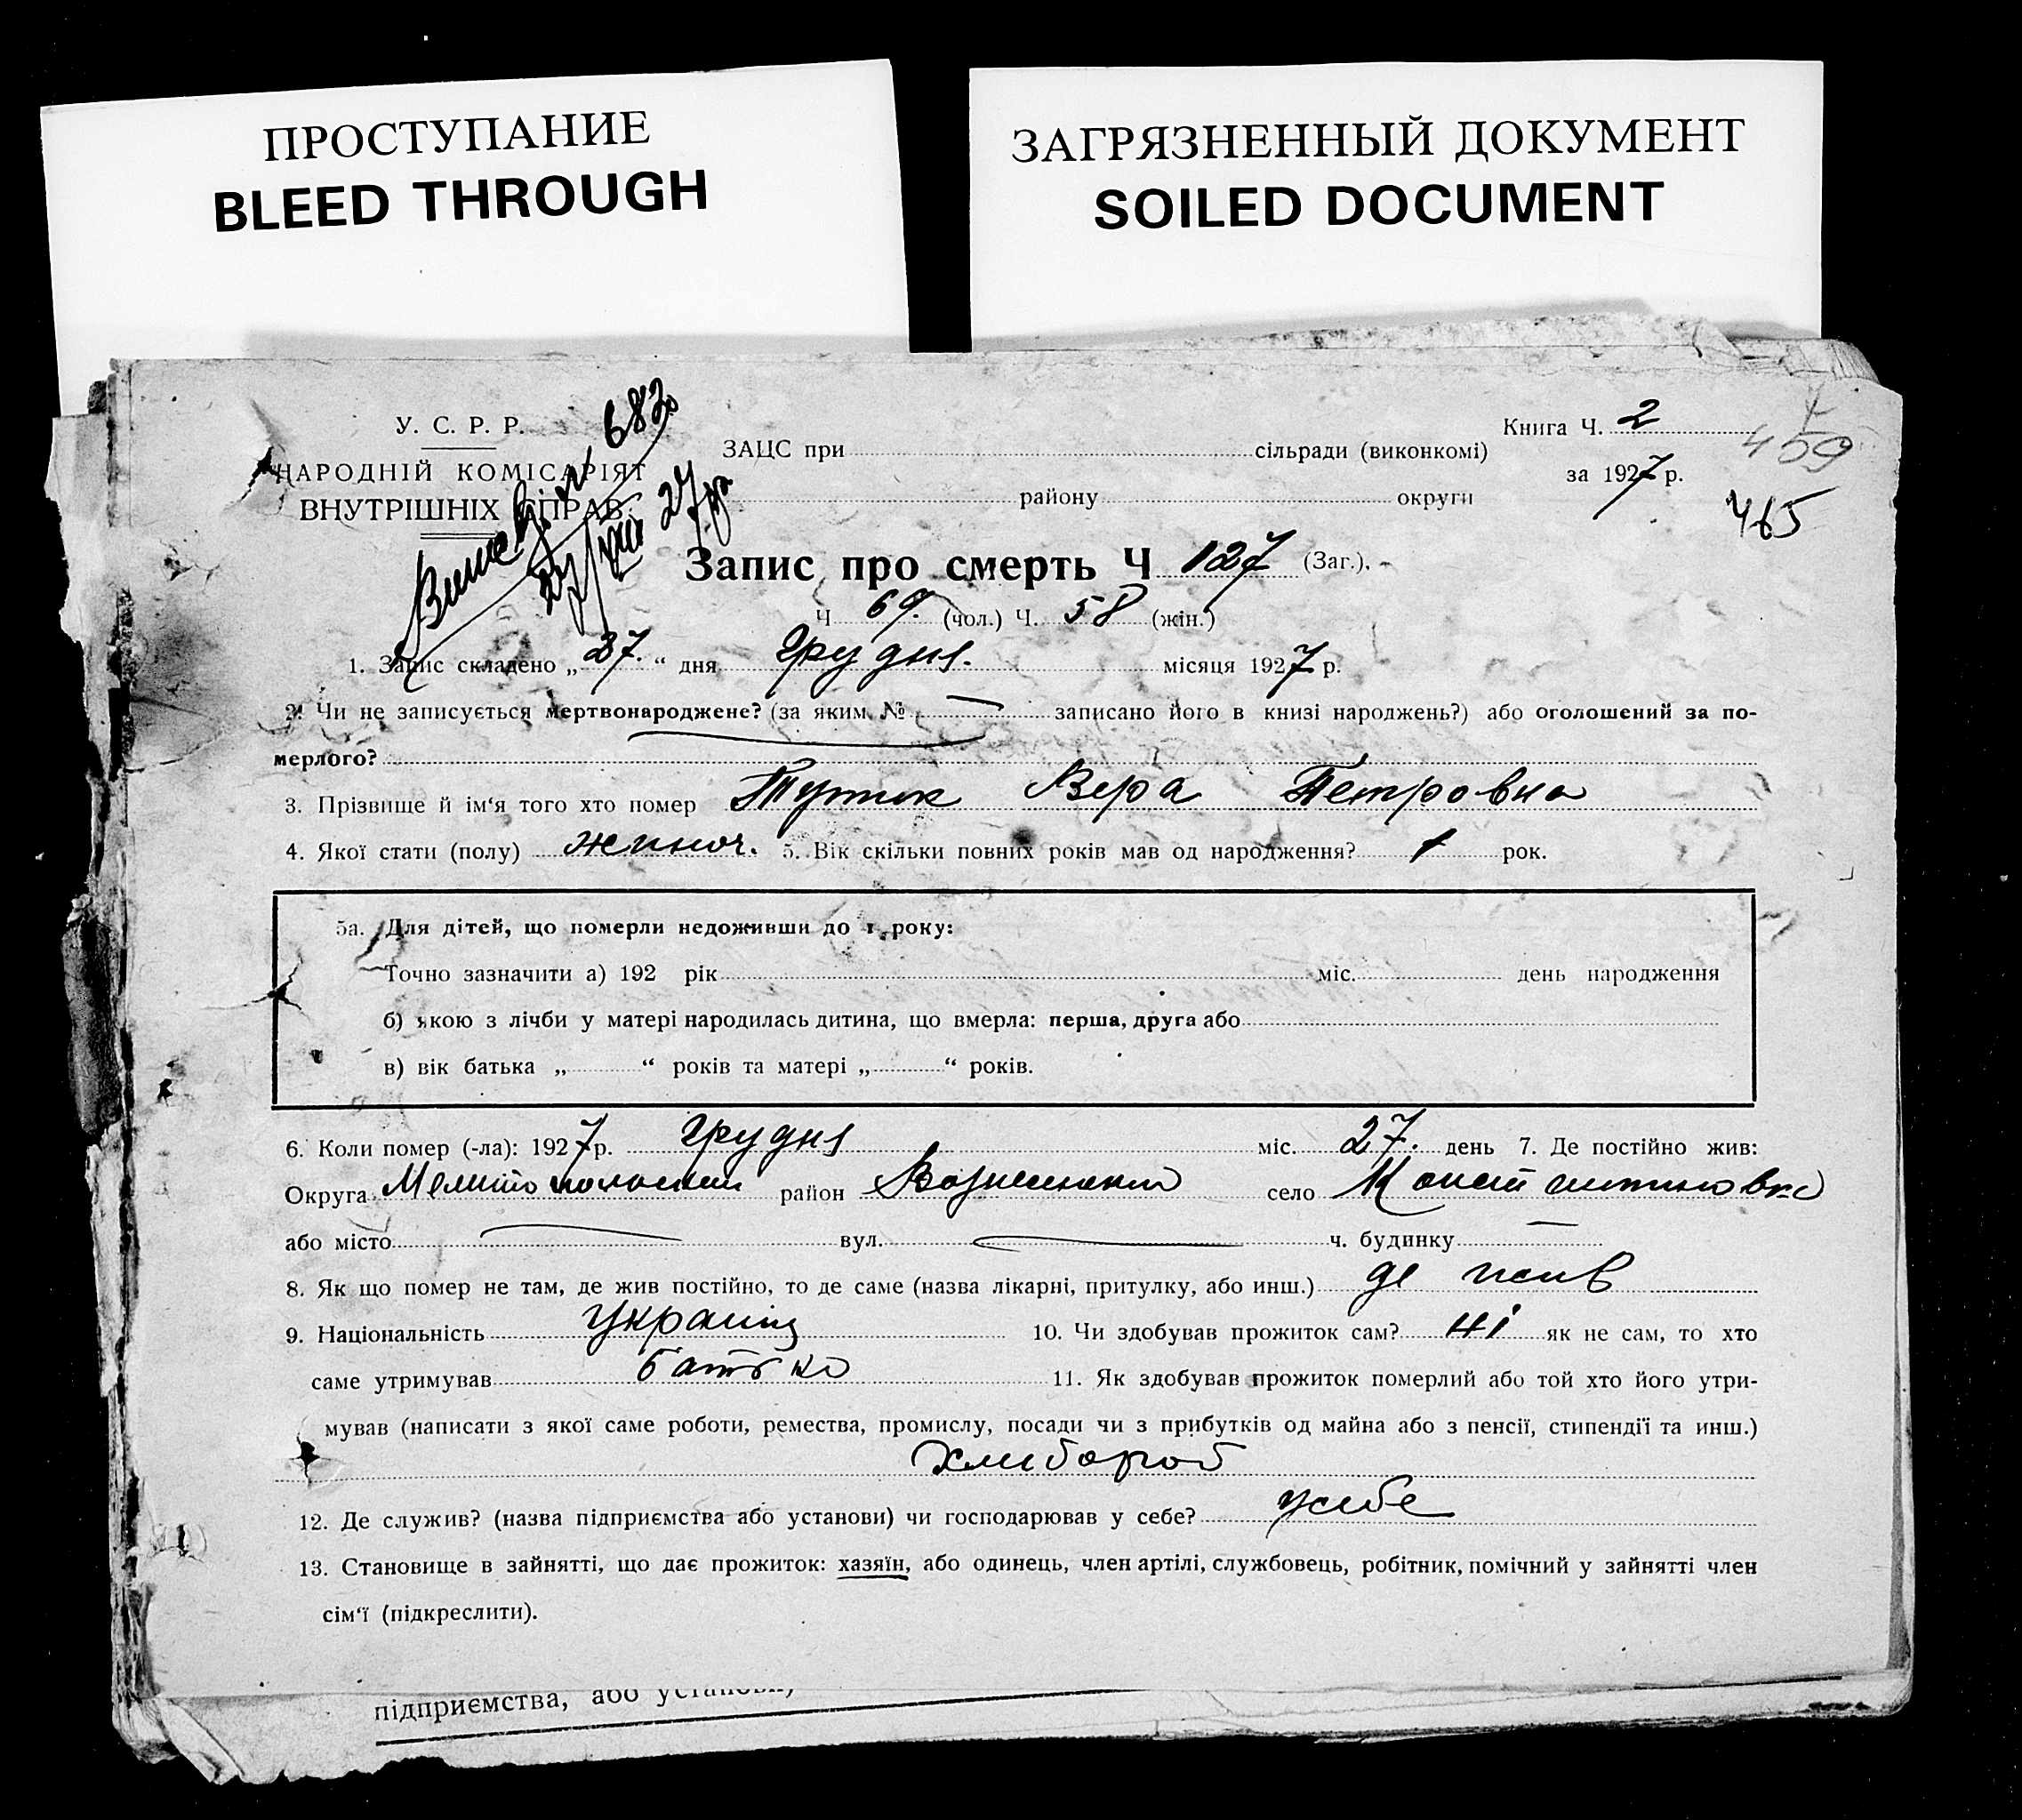 ПРОСТУПАНИЕ
BLEED THROUGH
ЗАГРЯЗНЕННЫЙ ДОКУМЕНТ
SOILED DOCUMENT
У. С. Р. Р.
НАРОДНІЙ КОМІСАРІЯТ
ВНУТРІШНІХ СПРАВ.
№ 682
27/XII 27 р
ЗАЦС при сільради (виконкомі)
району округи
Книга Ч. 2
за 1927 р.
459
465
Запис про смерть Ч 127 (Заг.).
Ч 69. (чол.) Ч. 58 (жін.)
1. Запис складено „27.“ дня Грудня. місяця 1927 р.
2. Чи не записується мертвонароджене? (за яким № — записано його в книзі народжень?) або оголошений за по-
мерлого?
3. Прізвище й ім‘я того хто помер Вера Петровна
4. Якої стати (полу) жиноч. 5. Вік скільки повних років мав од народження? 1 рок.
5а. Для дітей, що померли недоживши до 1 року:
Точно зазначити а) 192 рік міс. день народження
б) якою з лічби у матері народилась дитина, що вмерла: перша, друга або
в) вік батька „ “ років та матері „ “ років.
6. Коли помер (-ла): 1927 р. Грудня міс. 27. день 7. Де постійно жив:
Округа район село
або місто — вул. — ч. будинку —
8. Як що помер не там, де жив постійно, то де саме (назва лікарні, притулку, або инш.) де жив
9. Національність 10. Чи здобував прожиток сам? ні як не сам, то хто
саме утримував батько 11. Як здобував прожиток померлий або той хто його утри-
мував (написати з якої саме роботи, ремества, промислу, посади чи з прибутків од майна або з пенсії, стипендії та инш.)
Хлибороб
12. Де служив? (назва підприємства або установи) чи господарював у себе? у себе
13. Становище в зайнятті, що дає прожиток: хазяїн, або одинець, член артілі, службовець, робітник, помічний у зайнятті член
сім‘ї (підкреслити).
підприємства, або установи)